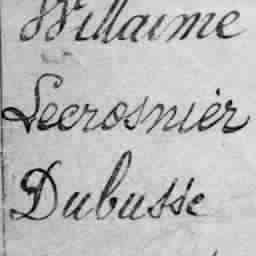 Willaime
Lecrosnier
Dubusse